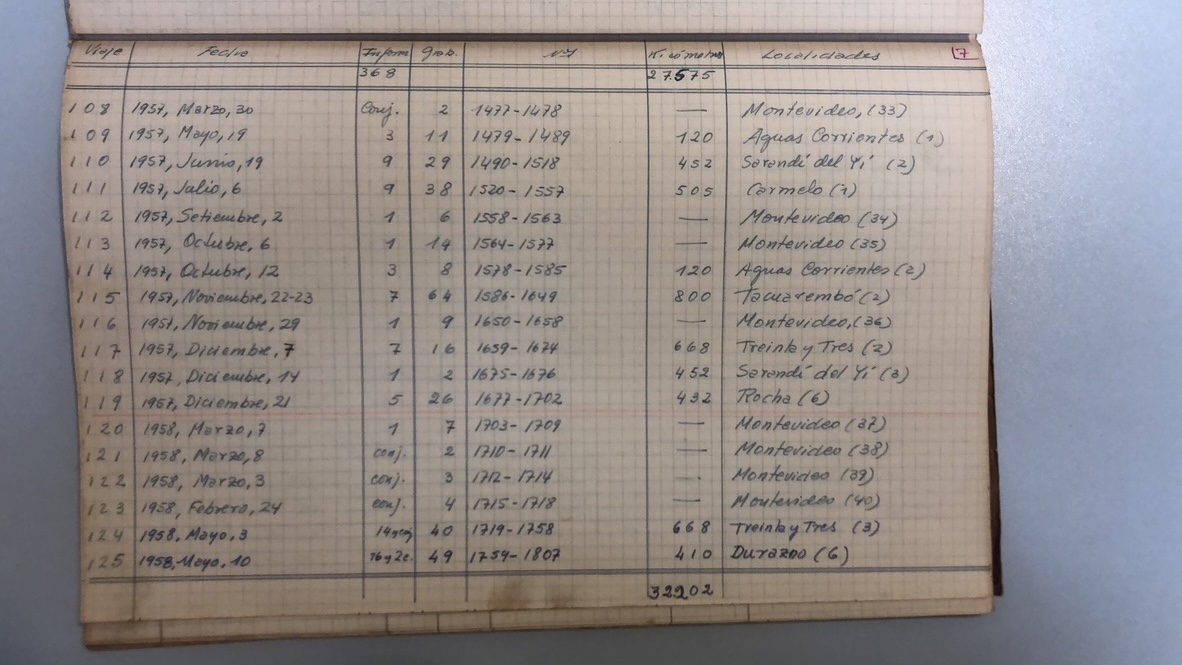 Viaje Fecha Inform Grab. Nos Kilómetros Localidades 7
368 27.575
108 1957, Marzo, 30 Conj. 2 1477-1478 — Montevideo, (33)
109 1957, Mayo, 19 3 11 1479-1489 120 Aguas Corrientes (1)
110 1957, Junio, 19 9 29 1490-1518 452 Sarandí del Yí (2)
111 1957, Julio, 6 9 38 1520-1557 505 Carmelo (1)
112 1957, Setiembre, 2 1 6 1558-1563 — Montevideo (34)
113 1957, Octubre, 6 1 14 1564-1577 — Montevideo (35)
114 1957, Octubre, 12 3 8 1578-1585 120 Aguas Corrientes (2)
115 1957, Noviembre, 22-23 7 64 1586-1649 800 Tacuarembó (2)
116 1957, Noviembre, 29 1 9 1650-1658 — Montevideo, (36)
117 1957, Diciembre, 7 7 16 1659-1674 668 Treinta y Tres (2)
118 1957, Diciembre, 14 1 2 1675-1676 452 Sarandí del Yí (3)
119 1957, Diciembre, 21 5 26 1677-1702 432 Rocha (6)
120 1958, Marzo, 7 1 7 1703-1709 — Montevideo (37)
121 1958, Marzo, 8 conj. 2 1710-1711 — Montevideo (38)
122 1958, Marzo, 3 conj. 3 1712-1714 — Montevideo (39)
123 1958, Febrero, 24 conj. 4 1715-1718 — Montevideo (40)
124 1958, Mayo, 3 40 1719-1758 668 Treinta y Tres (3)
125 1958, Mayo, 10 16 y 2c. 49 1759-1807 410 Durazno (6)
32202